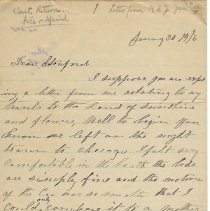 Dont Return
File & Special
Letter from
January 30, 1916
Dear Stanford
I suppose you are
ing a letter from me relating to my
travels to the land of sunshine
and flowers, Well to begin you
know we left on the night
train to Chicago I felt very
comfortable in the berth the beds
are simply fine and the motion
of the car is so smooth that I
could only compare it to a